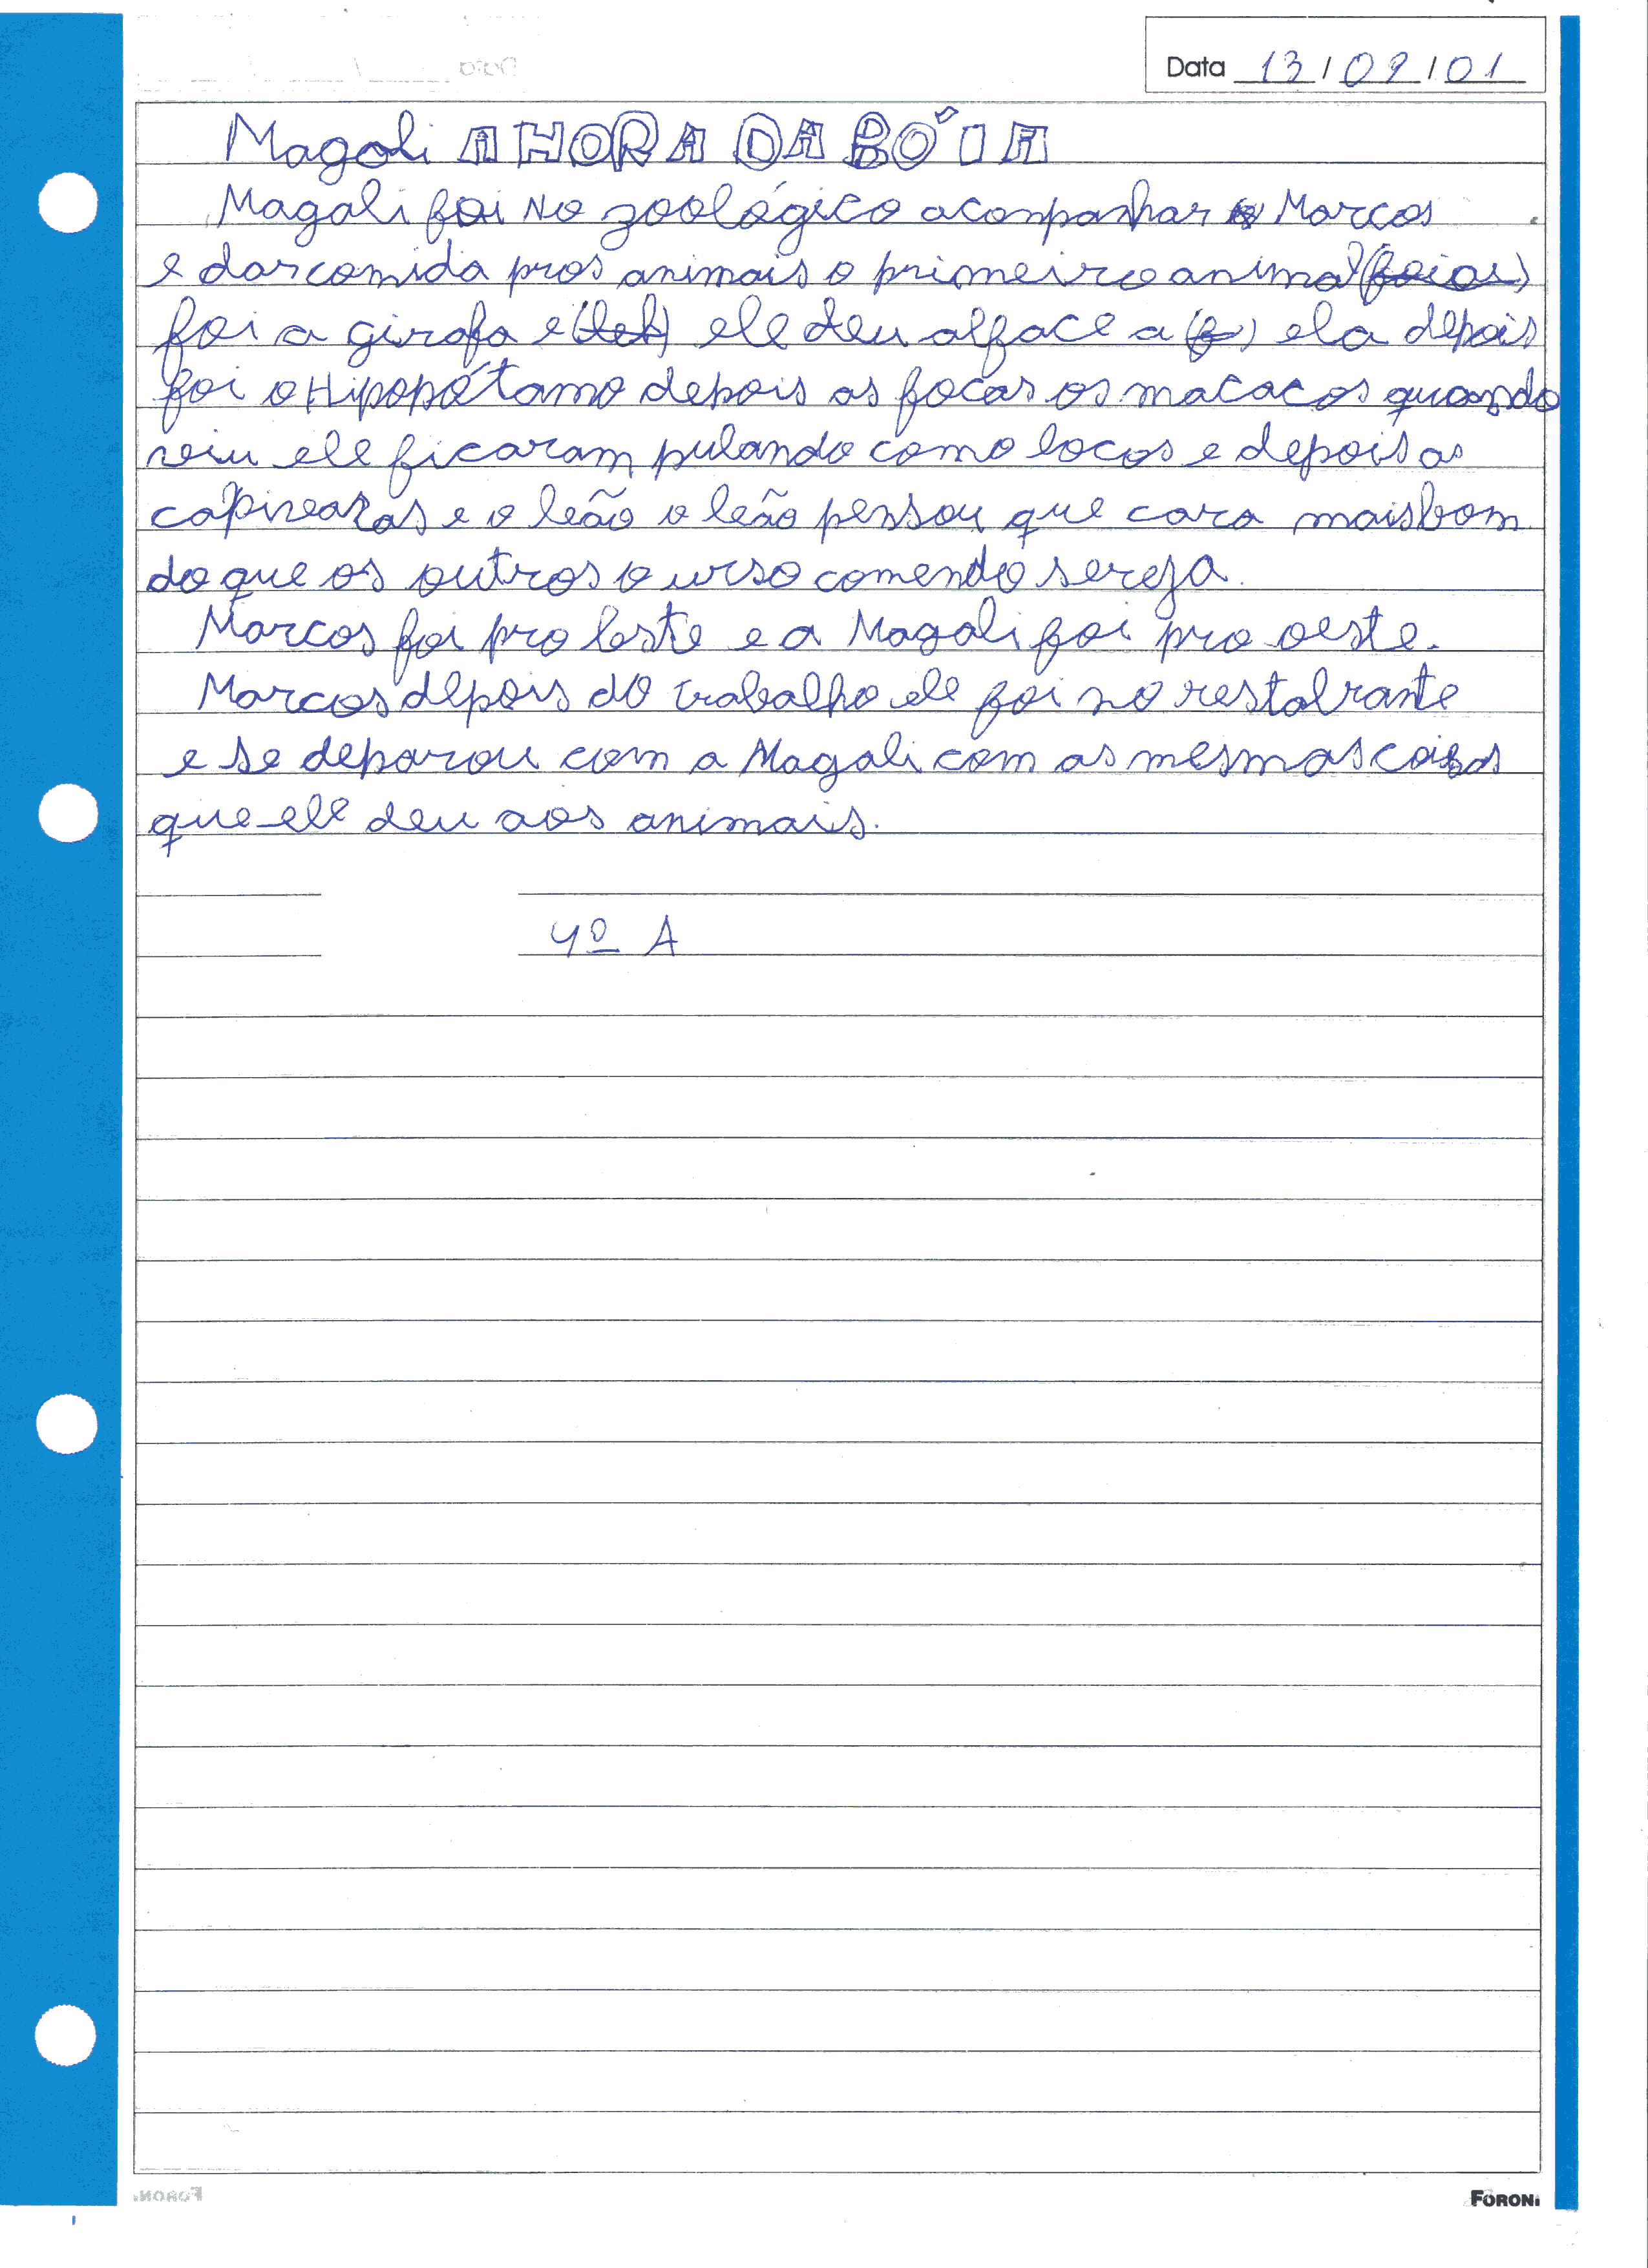 Data 13/09/01
Magali A HORA DA BÓIA
Magali foi no zoológico aconpanhar o Marcos
e darcomida pros animais o primeiro animal (foi os)
foi a girafa e ele deu alface a (f) ela depois
foi o Hipopótamo depois as focas os macacos quando
veiu ele ficaram pulando como locos e depois as
e o leão o leão pensou que cara maisbom
do que os outros o urso comendo sereja.
Marcos foi pro leste e a Magali foi pro oeste.
Marcos depois do trabalho ele foi no restalrante
e se deparou com a Magali com as mesmas coisas
que ele deu aos animais.
4º A
FORONI